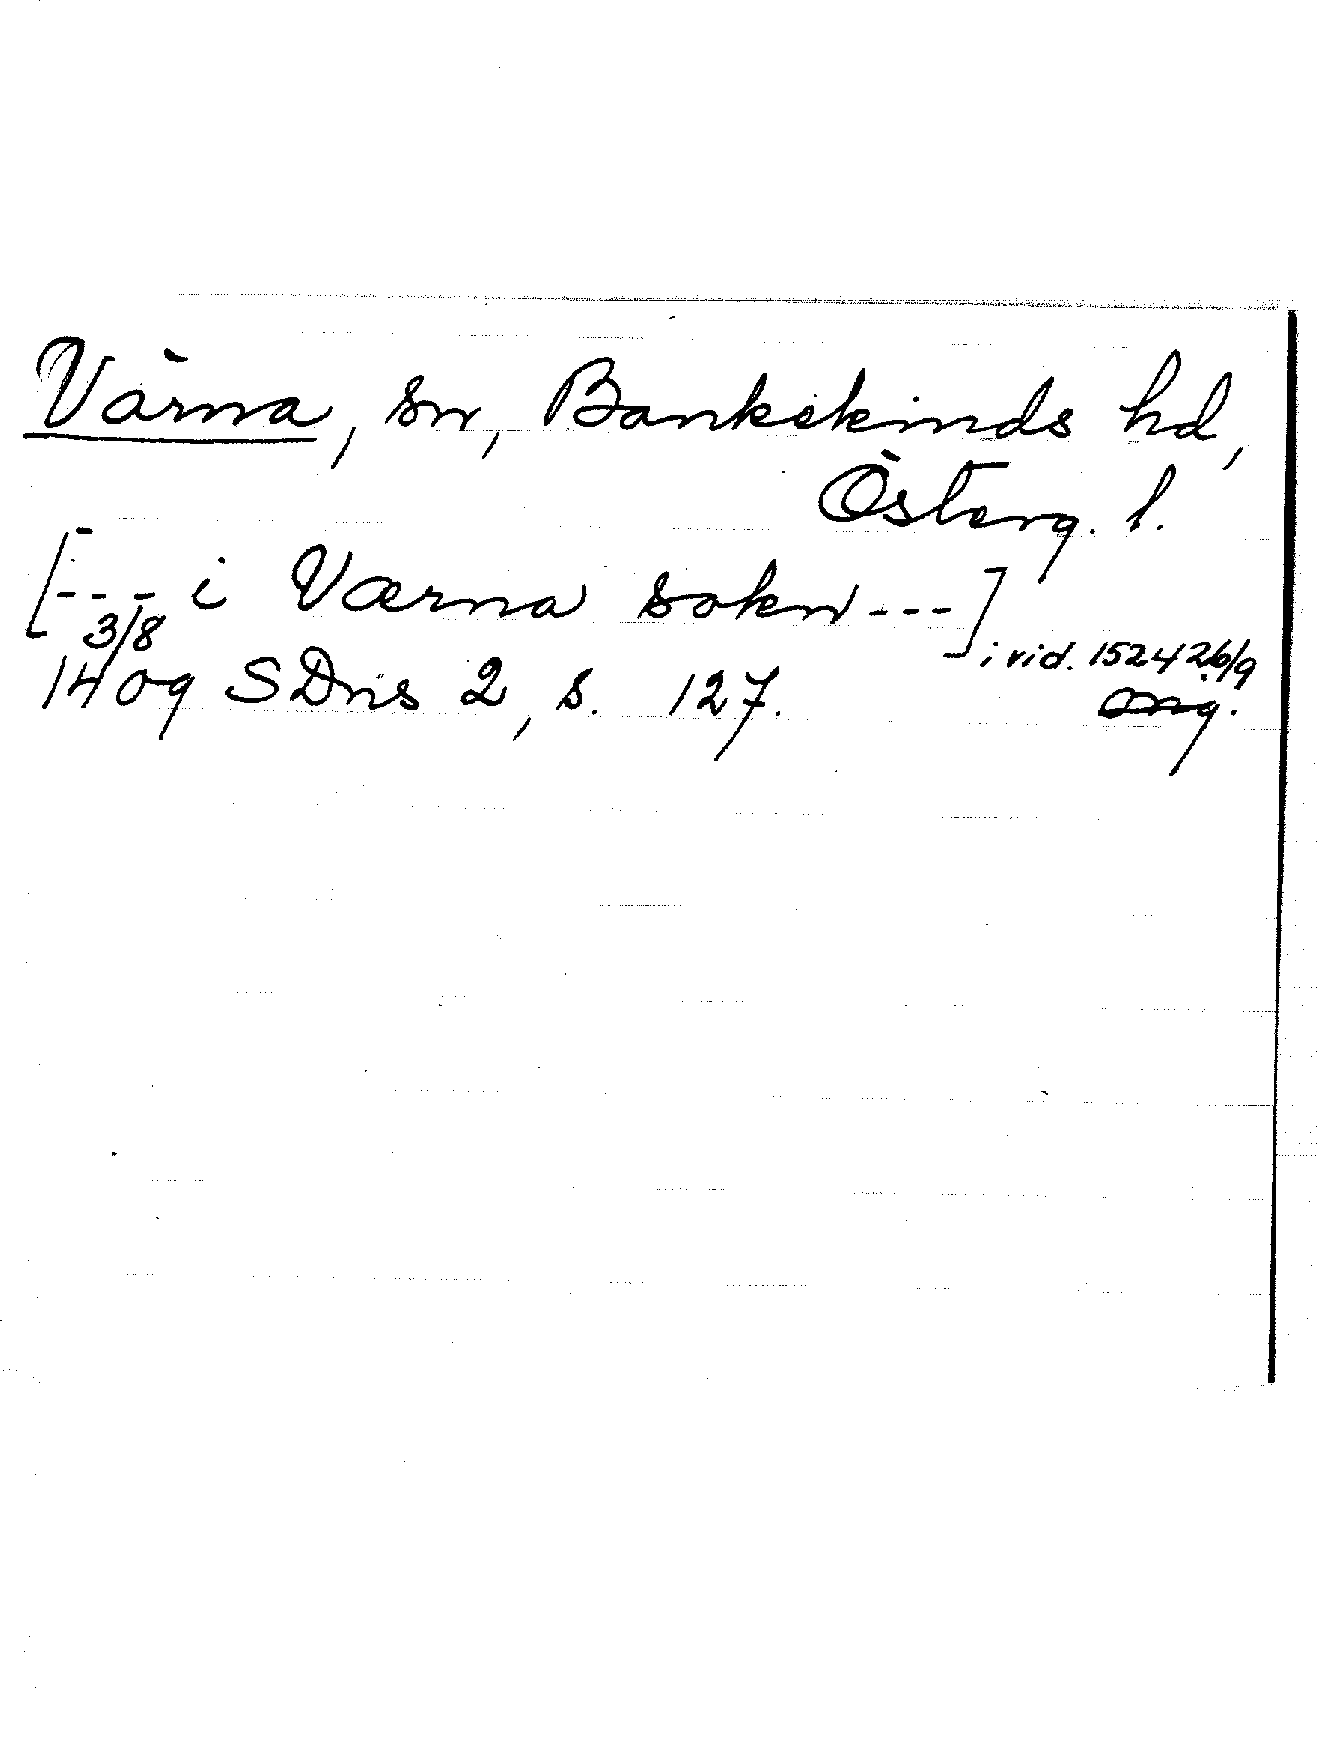 Värna, sn, Bankekinds hd,
Österg. l.
[--- i Værna sokn ---] i vid. 1524 26/9
3/8
1409 SDns 2, s. 127.